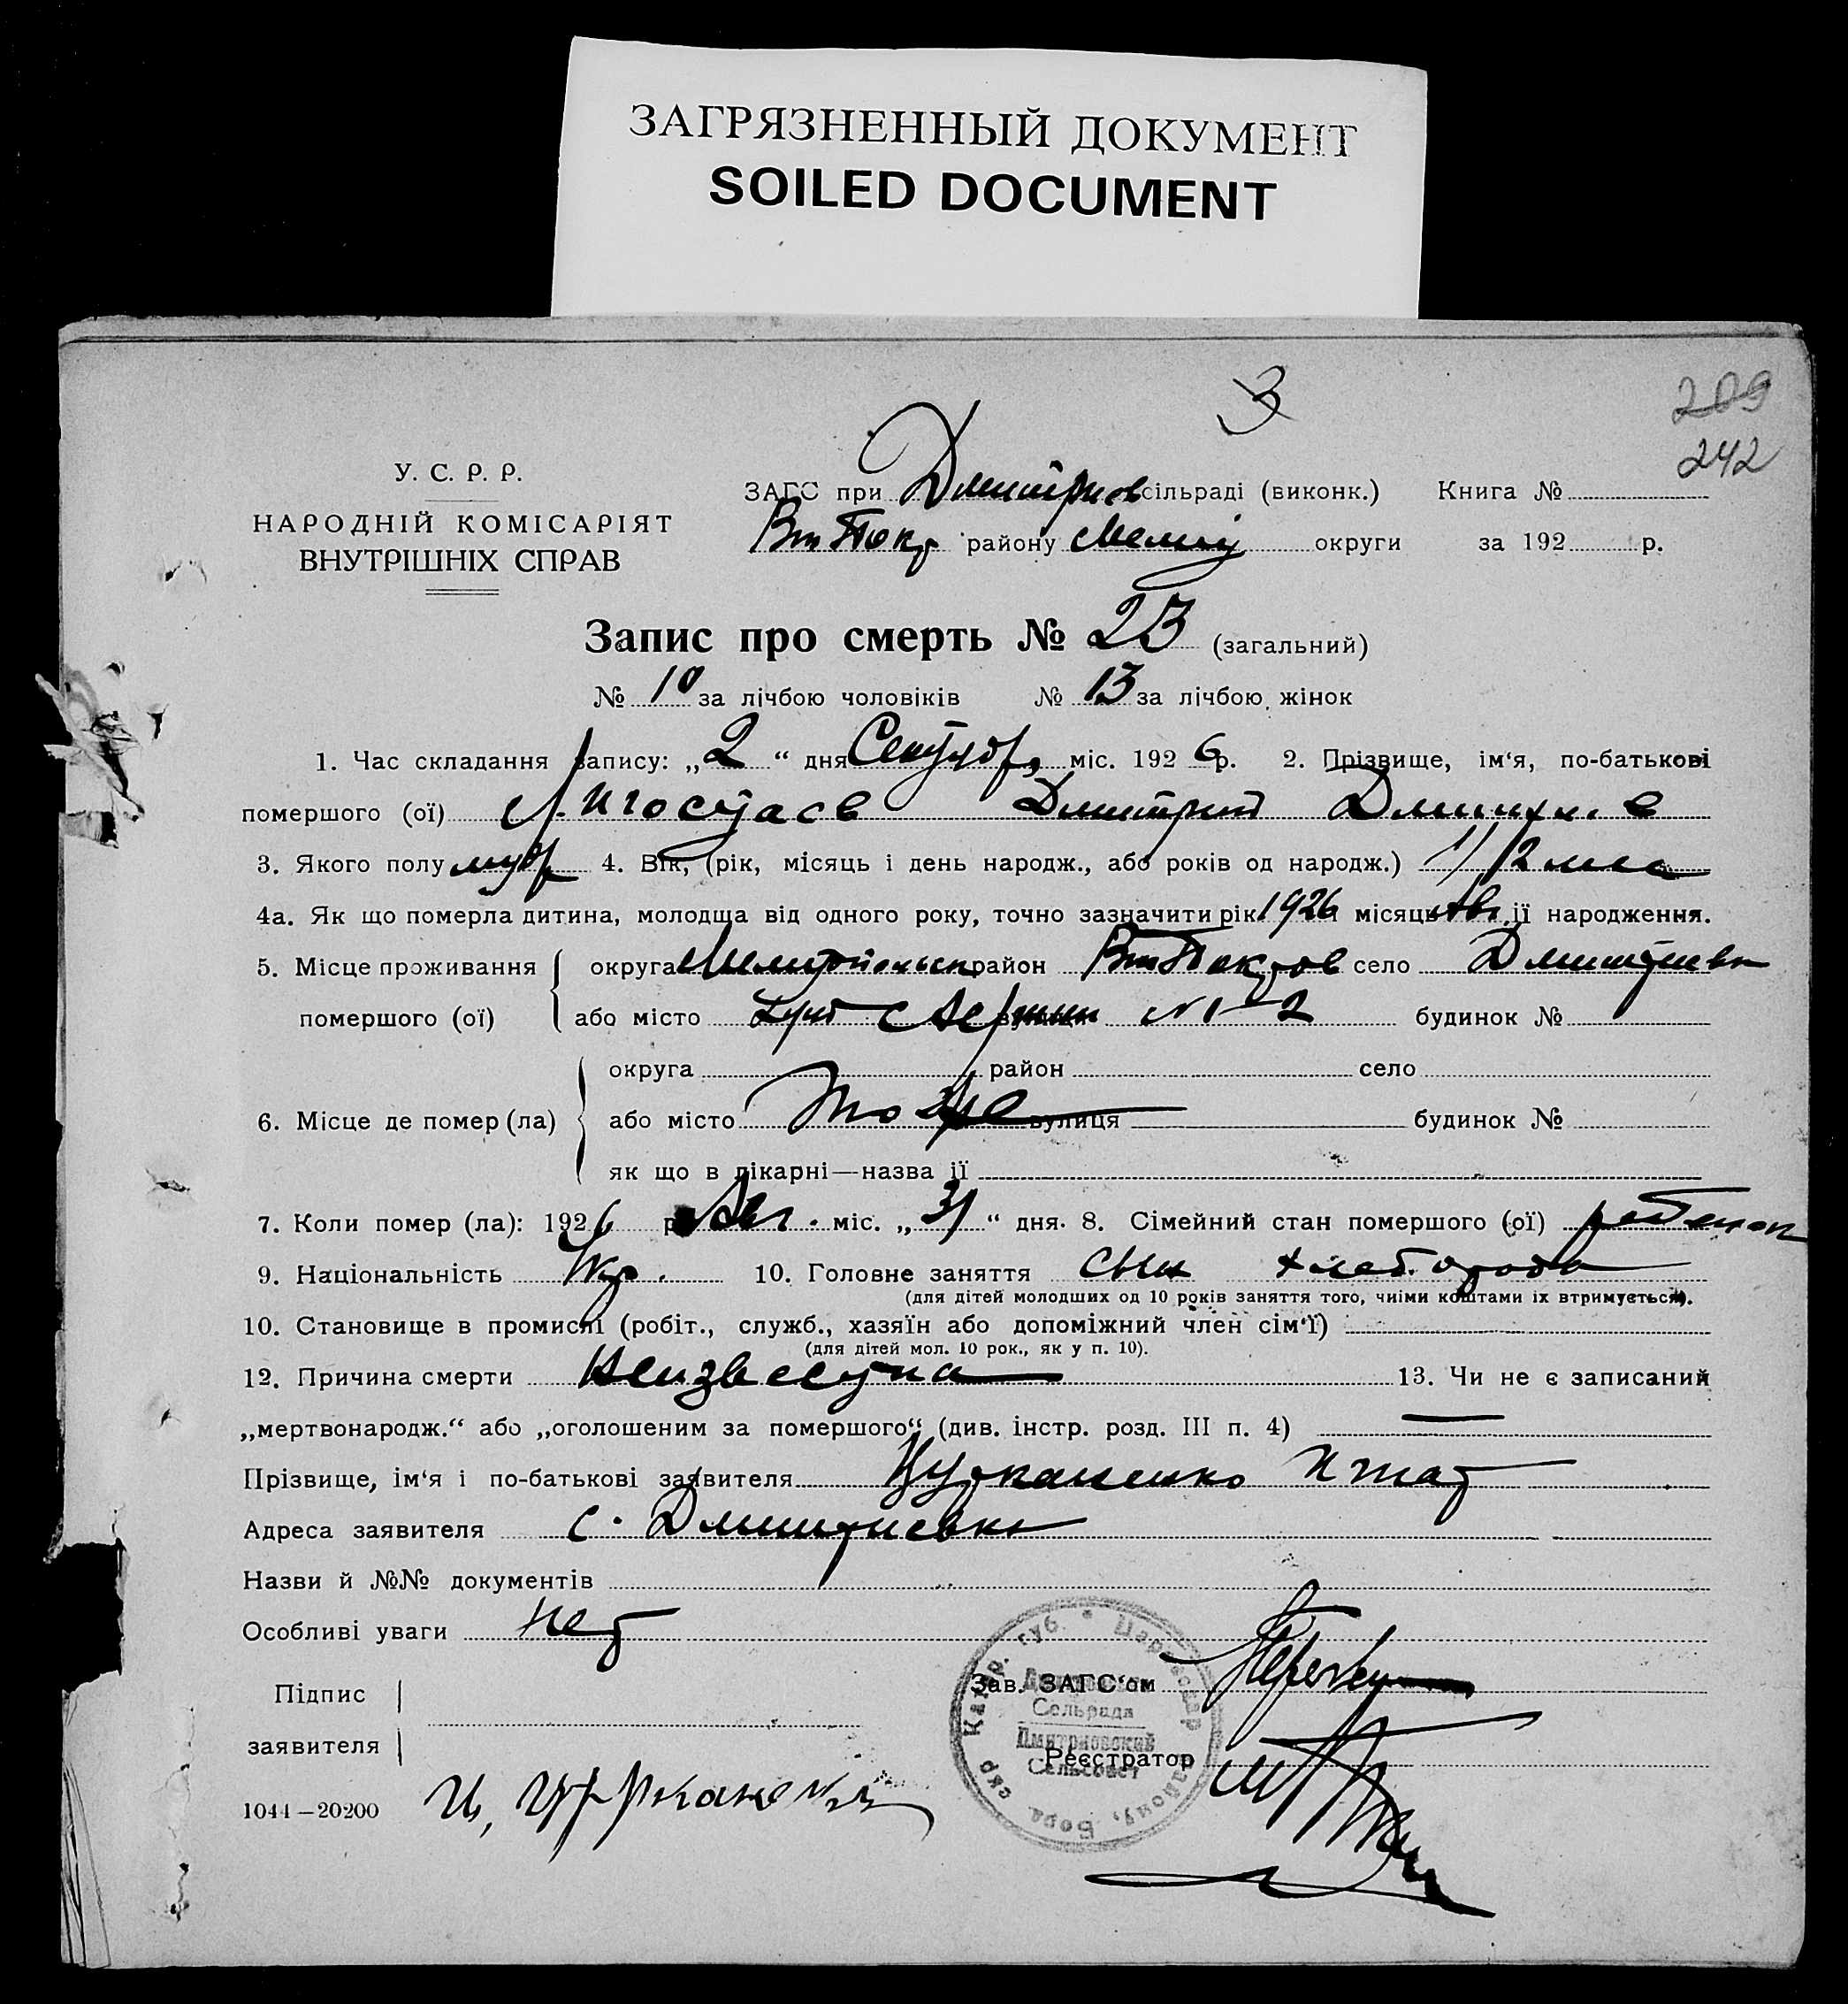 ЗАГРЯЗНЕННЫЙ ДОКУМЕНТ
SOILED DOCUMENT
3
209
242
У. С. Р. Р.
НАРОДНІЙ КОМІСАРІЯТ
ВНУТРІШНІХ СПРАВ
ЗАГС при Дмитриев сільраді (виконк.) Книга №
району округи за 192 р.
Запис про смерть № 23 (загальний)
№ 10 за лічбою чоловіків № 13 за лічбою жінок
1. Час складання запису: „ 2 “ дня Сентября міс. 192 6 р. 2. Прізвище, ім‘я, по-батькові
помершого (ої) Дмитрий
3. Якого полу муж 4. Вік, (рік, місяць і день народж., або років од народж.) 1/2 мес
4а. Як що померла дитина, молодша від одного року, точно зазначити рік 1926 місяць Авг. її народження.
5. Місце проживання округа район село Дмитриевка
помершого (ої) або місто № 2 будинок №
округа район село
6. Місце де помер (ла) або місто тоже вулиця будинок №
як що в лікарні—назва її
7. Коли помер (ла): 192 6 р. Авг. міс. „ 31 “ дня. 8. Сімейний стан помершого (ої) ребенок
9. Національність Укр. 10. Головне заняття сын хлебороба
(для дітей молодших од 10 років заняття того, чиіми коштами іх втримується).
10. Становище в промислі (робіт., служб., хазяїн або допоміжний член сім‘ї)
(для дітей мол. 10 рок., як у п. 10).
12. Причина смерти Неизвестна 13. Чи не є записаний
„мертвонародж.“ або „оголошеним за помершого“ (див. інстр. розд. III п. 4) —
Прізвище, ім‘я і по-батькові заявителя Игнат
Адреса заявителя с. Дмитриевка
Назви й №№ документів
Особливі уваги нет
Підпис
заявителя
Зав. ЗАГС‘ом
Сельрада
Дмитриовский
Сельсовет
Реєстратор
1044—20200